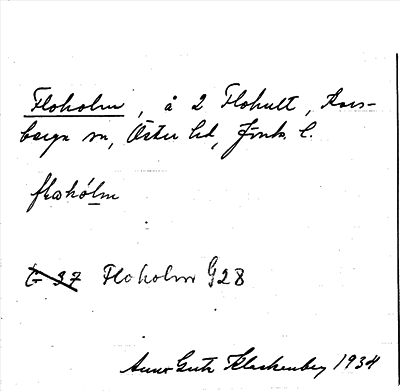 Floholm, å 2 Flohult, Kors-
berga sn, Östra hd, Jönk. l.
fləhólm
G 37 Floholm G28
Anna Greta Klackenberg 1934